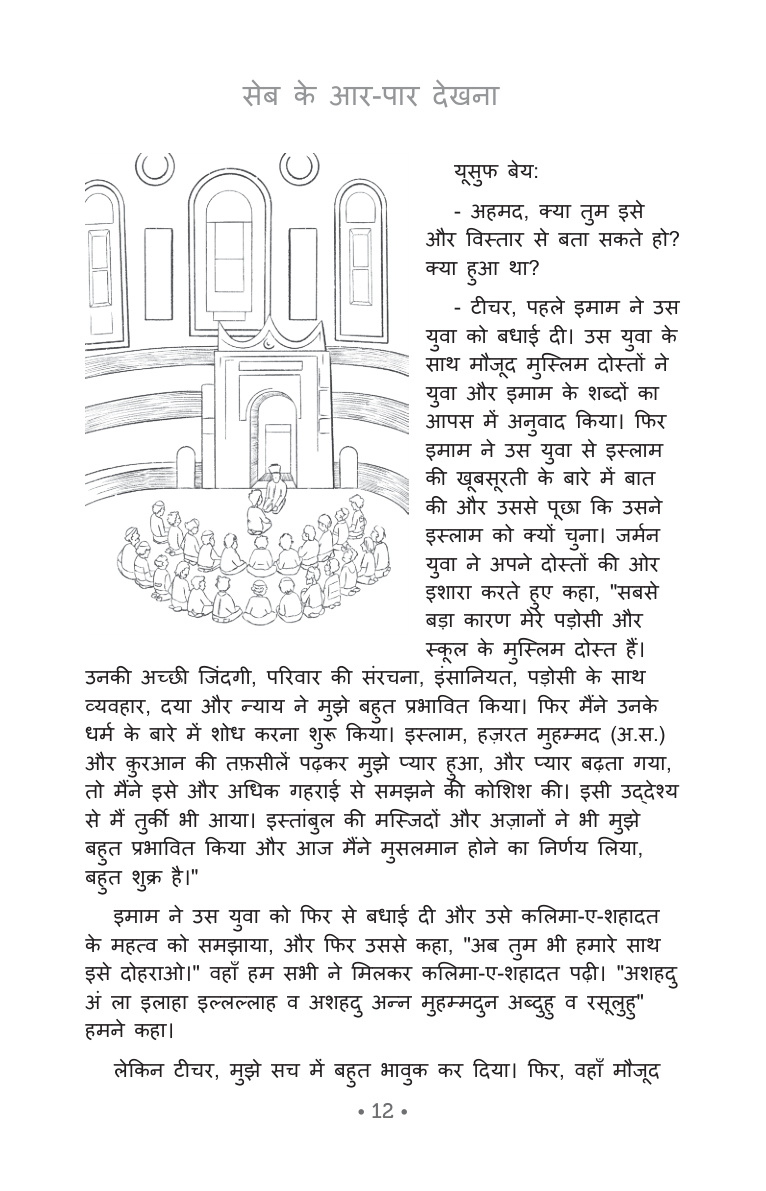 सेब के आर-पार देखना
यूसुफ बेय:
- अहमद, क्या तुम इसे
और विस्तार से बता सकते हो?
क्या हुआ था?
- टीचर, पहले इमाम ने उस
युवा को बधाई दी। उस युवा के
साथ मौजूद मुस्लिम दोस्तों ने
युवा और इमाम के शब्दों का
आपस में अनुवाद किया। फिर
इमाम ने उस युवा से इस्लाम
की खूबसूरती के बारे में बात
की और उससे पूछा कि उसने
इस्लाम को क्यों चुना। जर्मन
युवा ने अपने दोस्तों की ओर
इशारा करते हुए कहा, "सबसे
बड़ा कारण मेरे पड़ोसी और
स्कूल के मुस्लिम दोस्त हैं।
उनकी अच्छी जिंदगी, परिवार की संरचना, इंसानियत, पड़ोसी के साथ
व्यवहार, दया और न्याय ने मुझे बहुत प्रभावित किया। फिर मैंने उनके
धर्म के बारे में शोध करना शुरू किया। इस्लाम, हज़रत मुहम्मद (अ.स.)
और क़ुरआन की तफ़सीलें पढ़कर मुझे प्यार हुआ, और प्यार बढ़ता गया,
तो मैंने इसे और अधिक गहराई से समझने की कोशिश की। इसी उद्देश्य
से मैं तुर्की भी आया। इस्तांबुल की मस्जिदों और अज़ानों ने भी मुझे
बहुत प्रभावित किया और आज मैंने मुसलमान होने का निर्णय लिया,
बहुत शुक्र है।"
इमाम ने उस युवा को फिर से बधाई दी और उसे कलिमा-ए-शहादत
के महत्व को समझाया, और फिर उससे कहा, "अब तुम भी हमारे साथ
इसे दोहराओ।" वहाँ हम सभी ने मिलकर कलिमा-ए-शहादत पढ़ी। "अशहदु
अं ला इलाहा इल्लल्लाह व अशहदु अन्न मुहम्मदुन अब्दुहु व रसूलुहु"
हमने कहा।
लेकिन टीचर, मुझे सच में बहुत भावुक कर दिया। फिर, वहाँ मौजूद
• 12 •